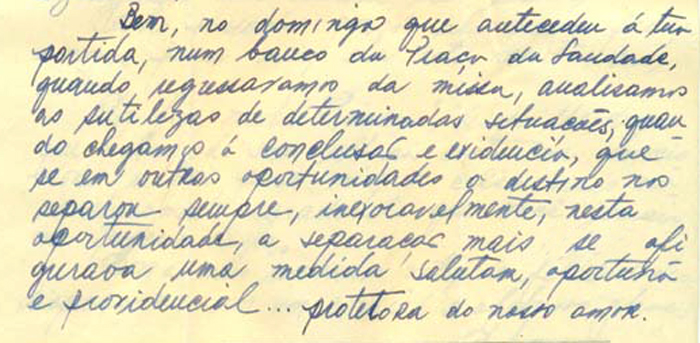 Bem, no domingo que antecedeu á tua
partida, num banco da Praça da Saudade,
quando regressavamos da missa, analisamos
as sutilezas de determinadas situações, quan
do chegamos á conclusão e evidencia, que
se em outras oportunidades o destino nos
separou sempre, inexoravelmente, nesta
oportunidade, a separação mais se afi
gurava uma medida salutar, oportuna
e providencial... protetora do nosso amor.